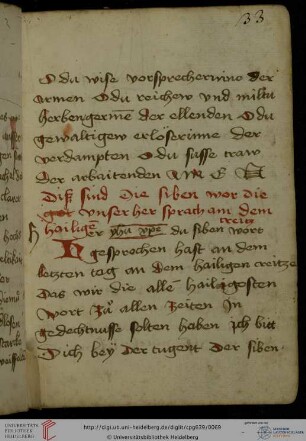 33
O du wise vorsprecherinne der
armen O du reichew vnd milte
herbergerinē der ellenden O du
gewaltigew erlöserinne der
verdampten O du süsse traw
der arbaitenden AM E
Disz sind Die siben wor die
got vnser her sprach an dem
hailige creitz
er yhu xpe du siben wort
gesprochen hast an dem
letzten tag an dem hailigen creitze
das wir die alle hailigosten
wort zů allen Zeiten In
gedechtnusse solten haben Ich bit
Dich bey der tugent der siben
UNIVERSITÄTS-
BIBLIOTHEK
HEIDELBERG
http://digi.ub.uni-heidelberg.de/diglit/cpg639/0069
© Universitätsbibliothek Heidelberg